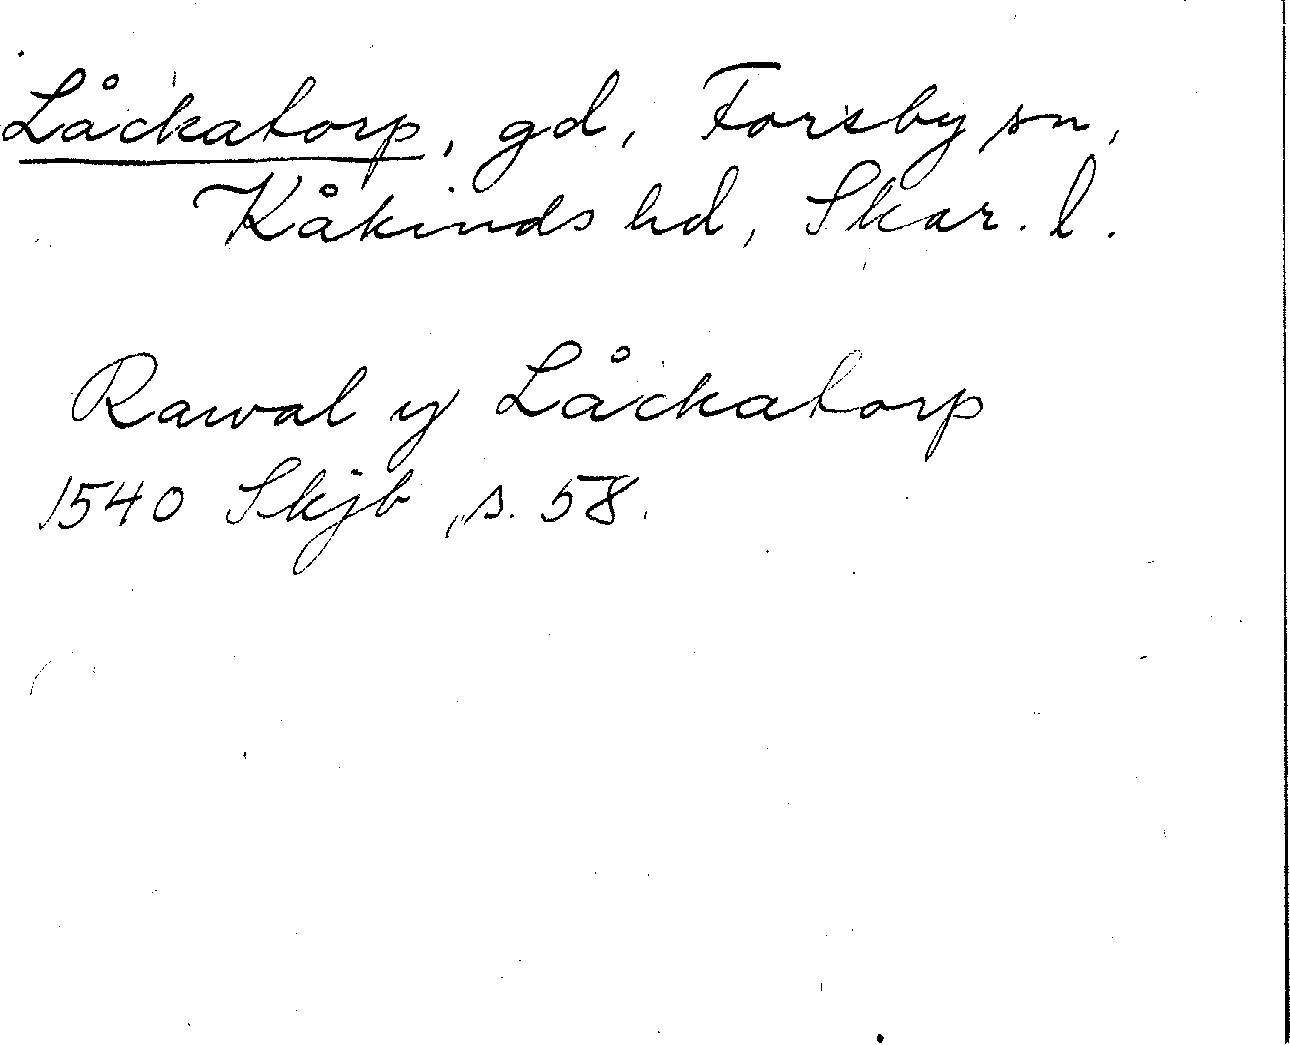 Låckatorp, gd, Forsby sn,
Kåkinds hd, Skar. l.
Rawal y Låckatorp
1540 Skjb, s. 58.